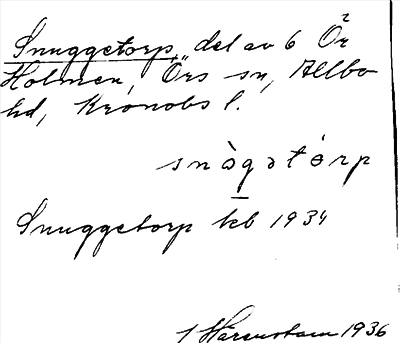 Snuggetorp, del av 6 Ör
Holmen, Örs sn, Allbo
hd, Kronobs l.
snògatórp
Snuggetorp kb 1934
1936